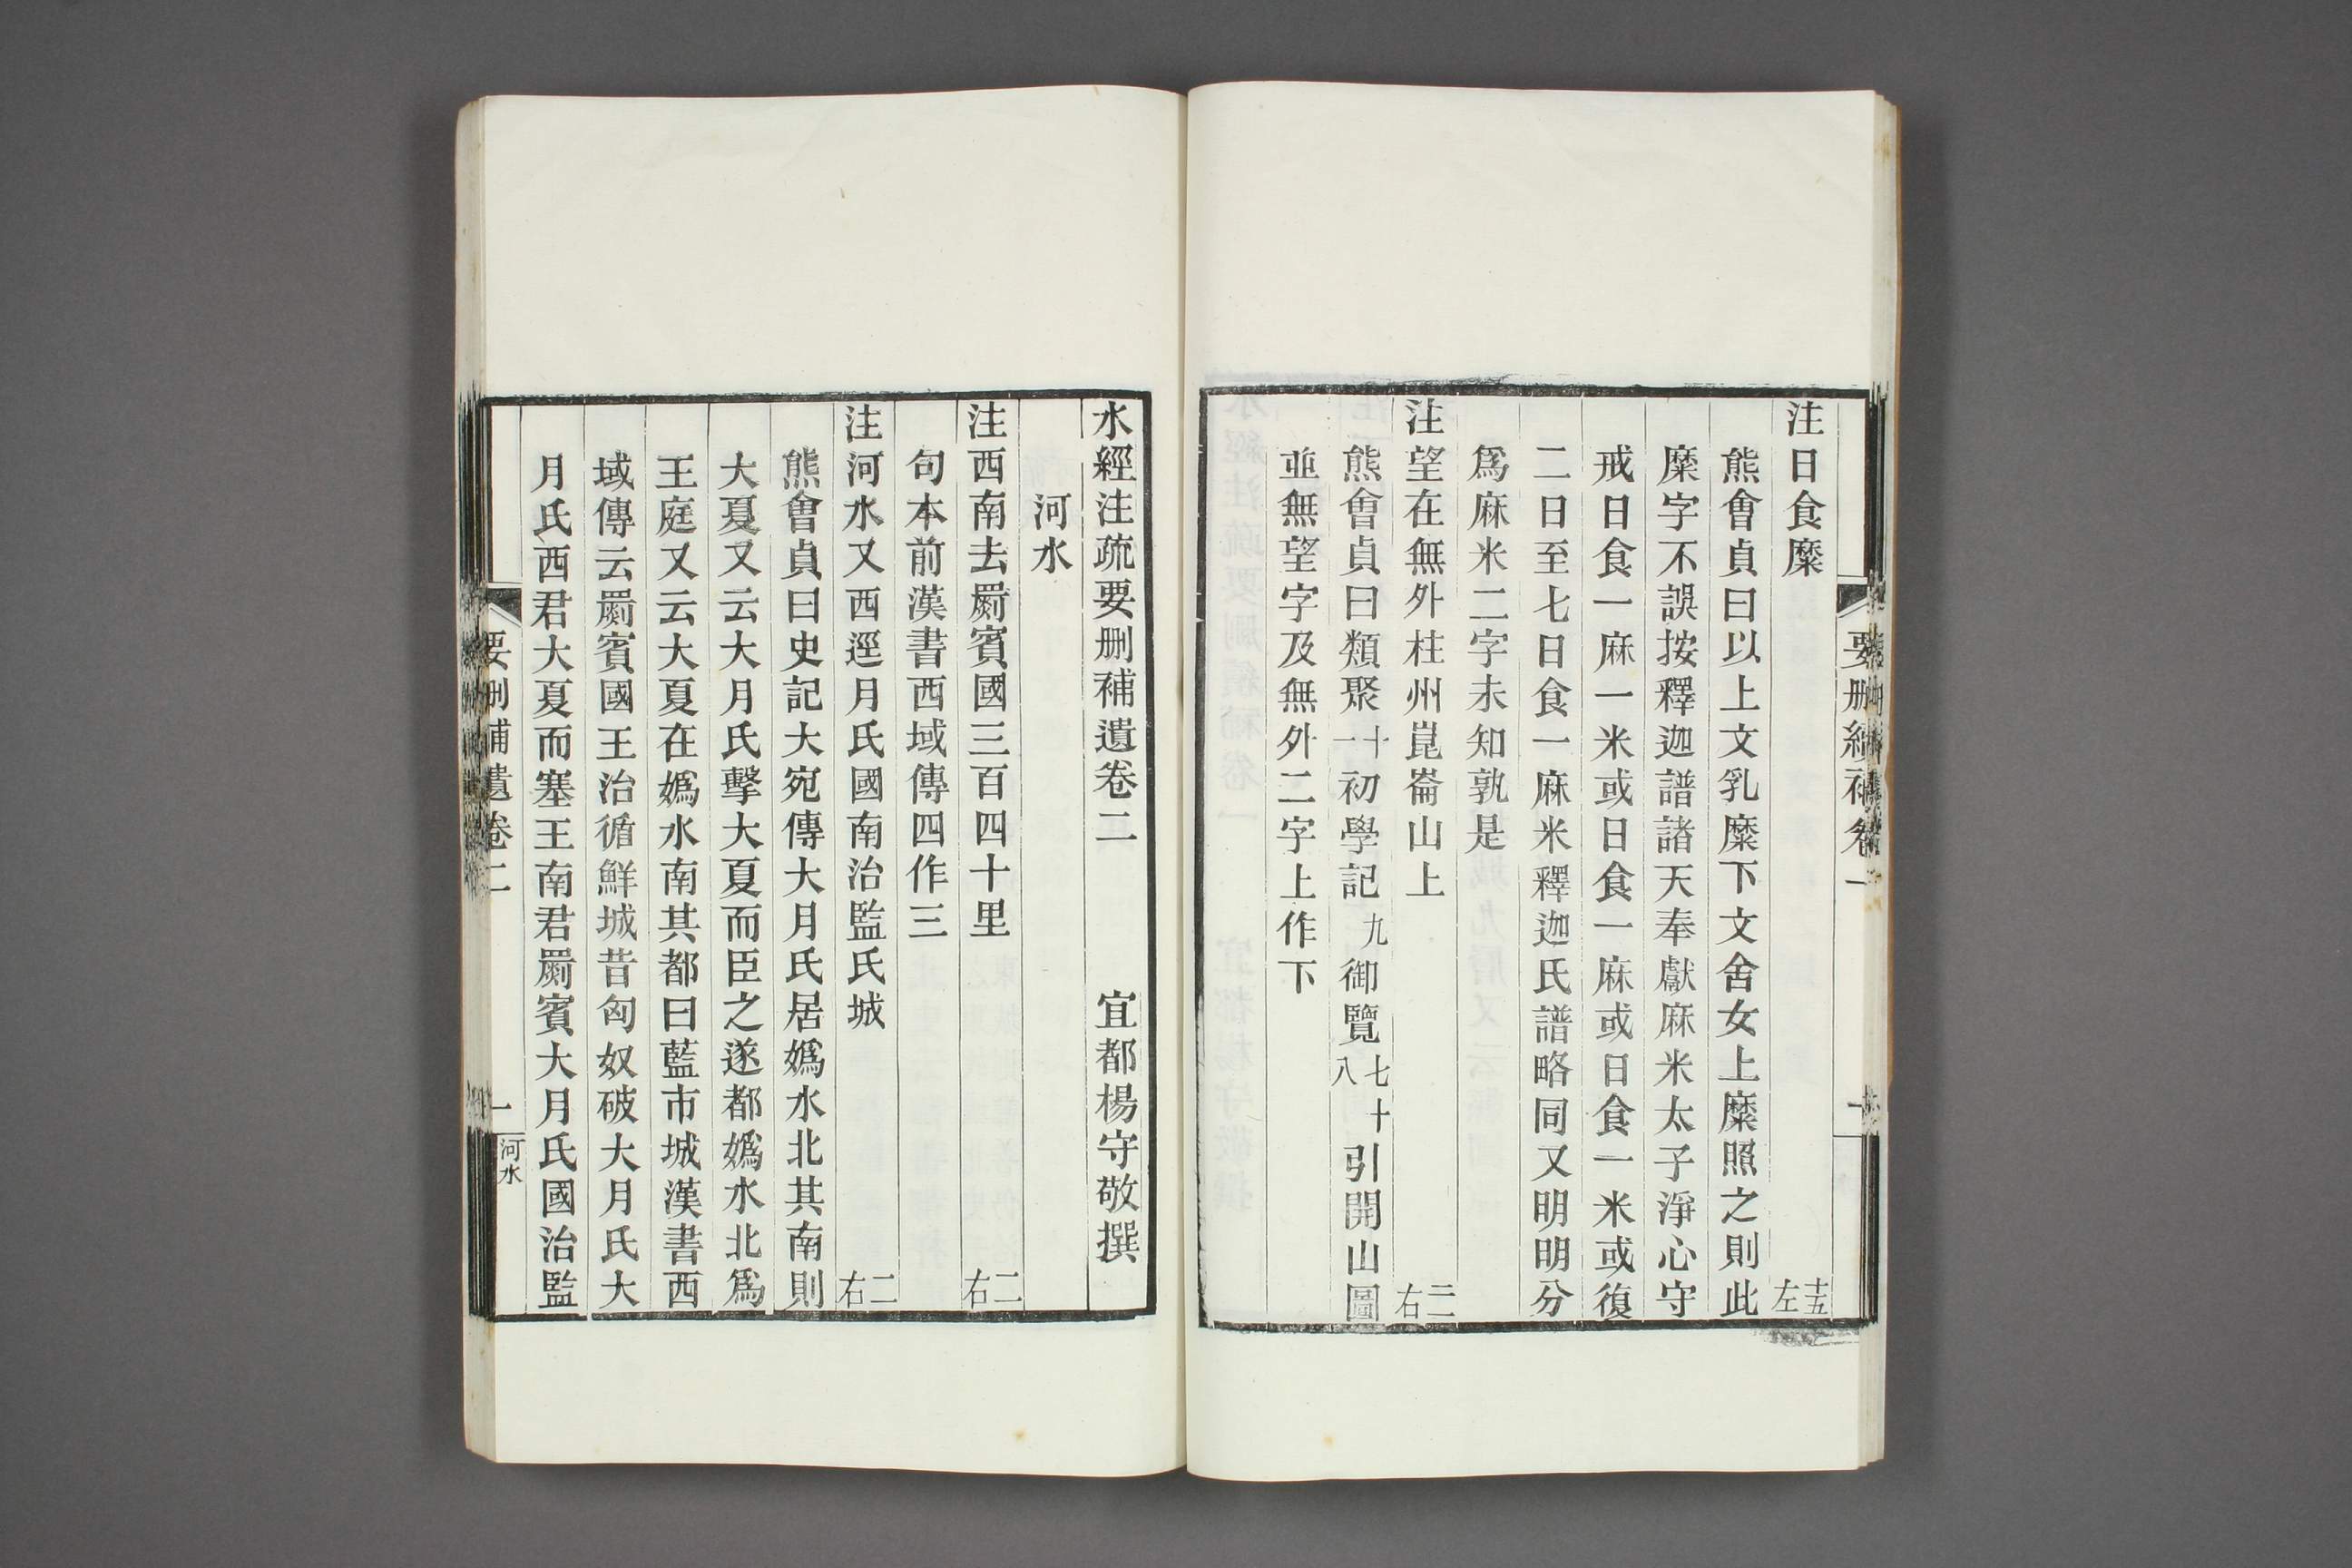 注日食糜 十五左
熊會貞曰以上文乳糜下文舍女上糜照之則此
糜字不誤按釋迦譜諸天奉獻麻米太子淨心守
戒日食一麻一米或日食一麻或日食一米或復
二日至七日食一麻米釋迦氏譜略同又明明分
爲麻米二字未知孰是
注望在無外柱州崑崙山上 二二右
熊會貞曰類聚十一初學記九御覽七十八引開山圖
並無望字及無外二字上作下
水經注疏要刪補遺卷二 宜都楊守敬撰
河水
注西南去罽賓國三百四十里 二右
句本前漢書西域傳四作三
注河水又西逕月氏國南治監氏城 二右
熊會貞曰史記大宛傳大月氏居嬀水北其南則
大夏又云大月氏擊大夏而臣之遂都嬀水北爲
王庭又云大夏在嬀水南其都曰藍市城漢書西
域傳云罽賓國王治循鮮城昔匈奴破大月氏大
月氏西君大夏而塞王南君罽賓大月氏國治監
要刪補遺卷二
一
河水